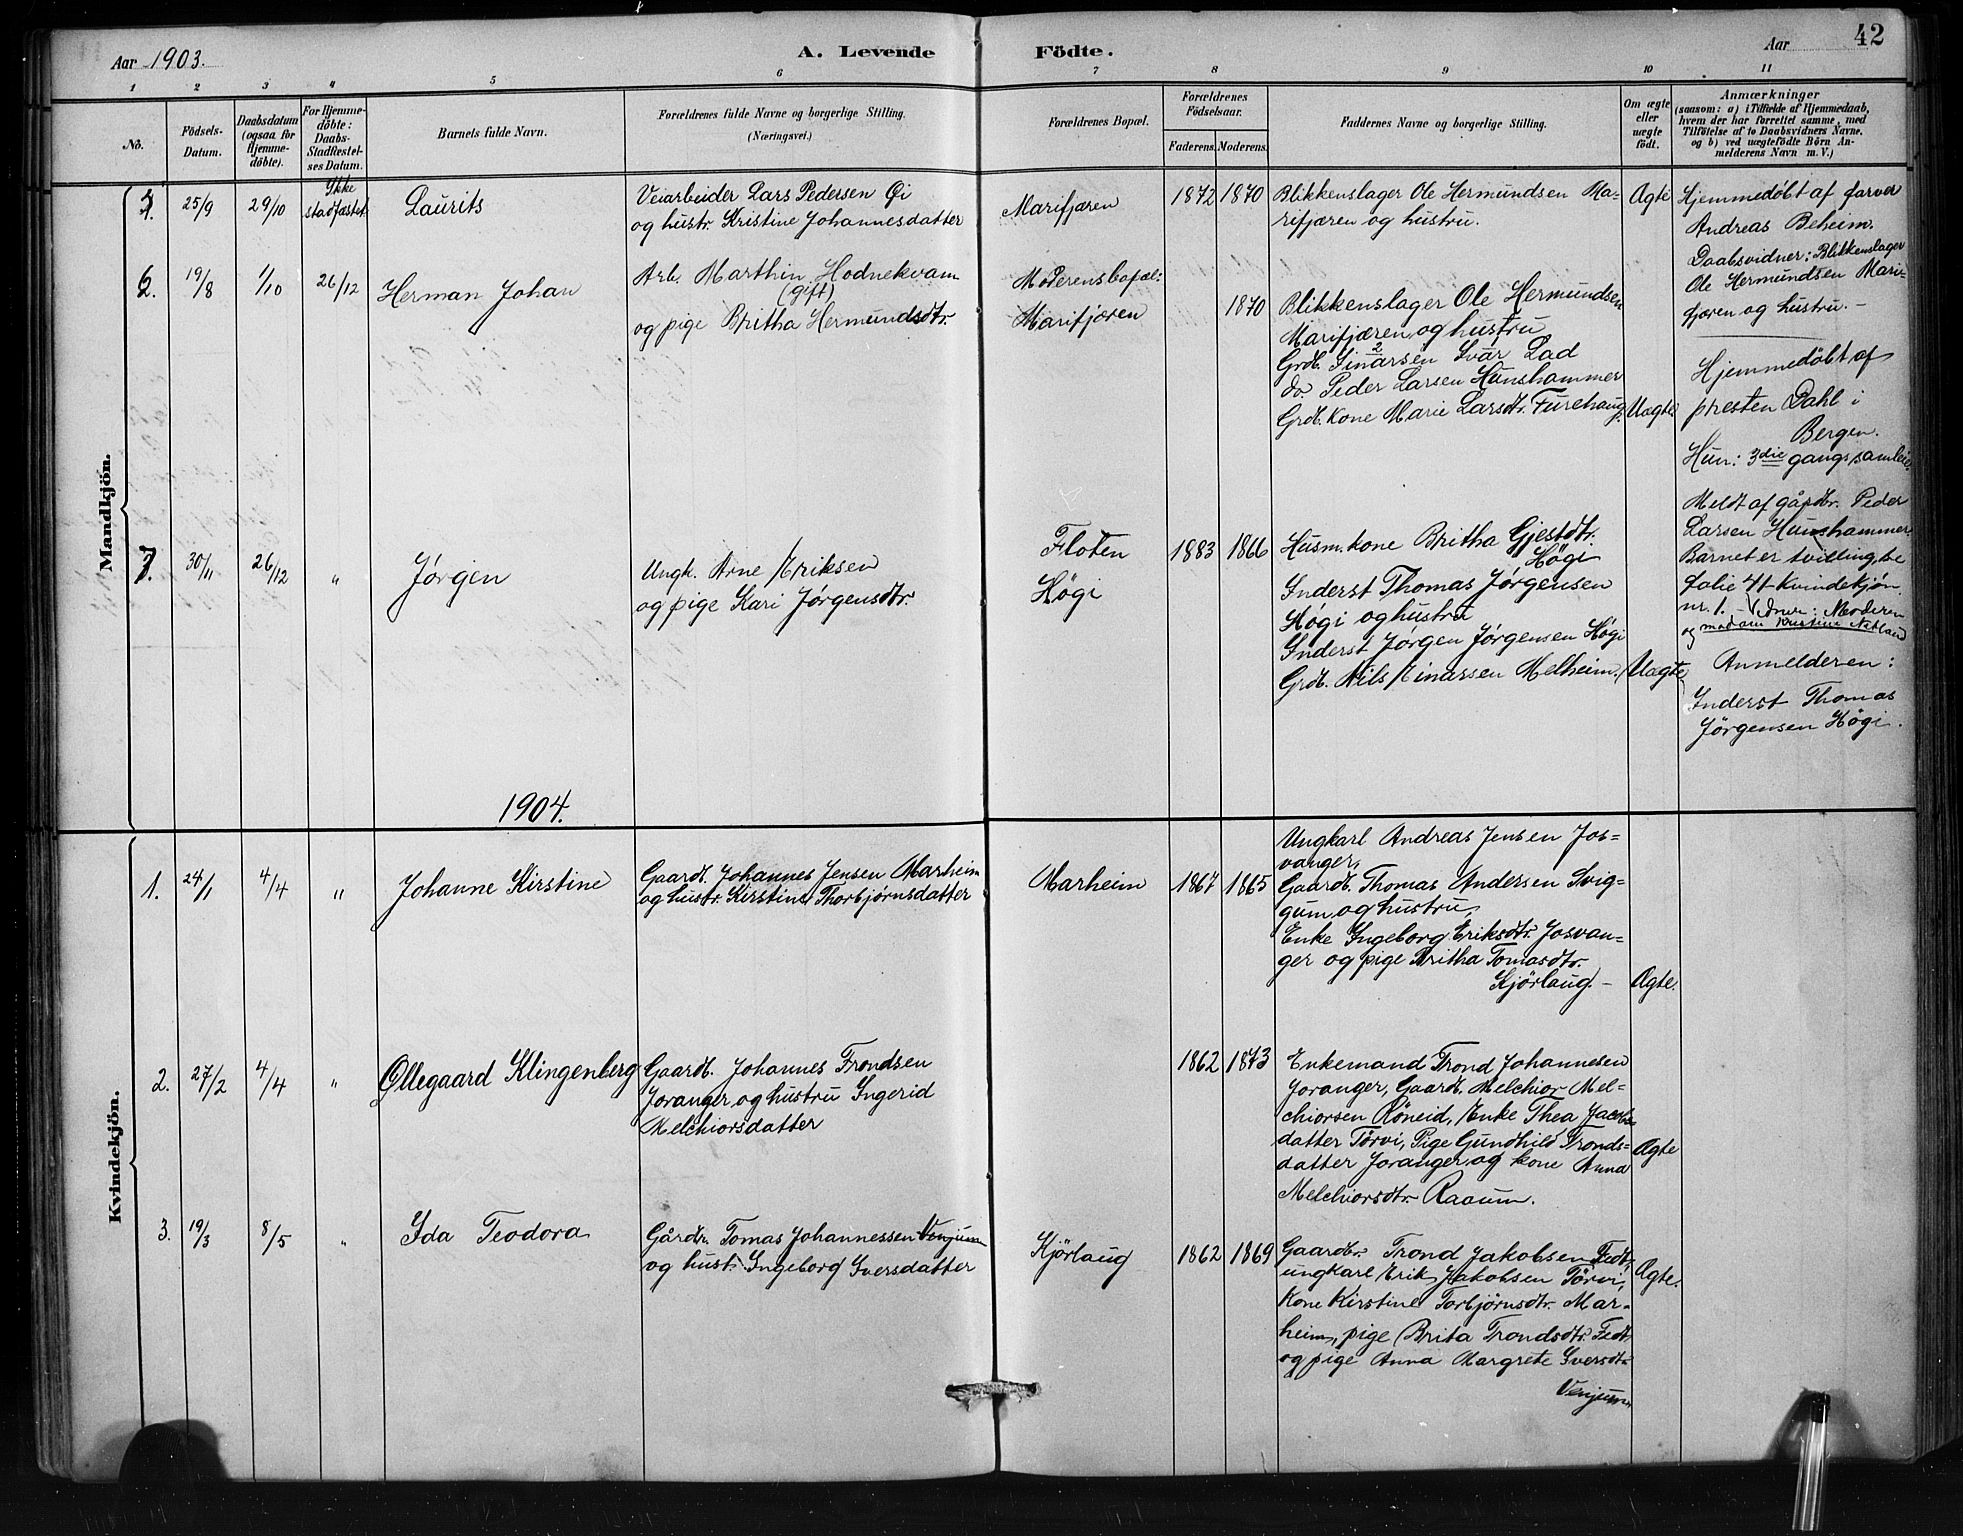 42
Aar 1903.
A. Levende Födte.
Aar
1 2 3 4 5 6 7 8 9 10 11
No.
Födsels-
Datum.
Daabsdatum
(ogsaa for
Hjemme-
döbte).
For Hjemme-
döbte:
Daabs-
Stadfæstel-
ses Datum.
Barnets fulde Navn.
Forældrenes fulde Navne og borgerlige Stilling.
(Næringsvei.)
Forældrenes Bopæl.
Forældrenes
Födselsaar.
Faderens. Moderens.
Faddernes Navne og borgerlige Stilling.
Om ægte
eller
uægte
födt.
Anmærkninger
(saasom: a) i Tilfælde af Hjemmedaab,
hvem der har forrettet samme, med
Tilföielse af to Daabsvidners Navne,
og b) ved uægtefödte Börn An-
melderens Navn m. V.)
Mandkjön.
25/9
29/10
Ikke
stadfæstet
Laurits
Veiarbeider Lars Pedersen Øi
og hustr. Kristine Johannesdatter
Marifjæren
1872
1870
Blikkenslager Ole Hermundsen Ma-
rifjæren og hustru.
Ægte
Hjemmedøbt af farver
Andreas Beheim.
Daabsvidner: Blikkenslager
Ole Hermundsen Mari-
fjæren og hustru. –
19/8
1/10
26/12
Herman Johan
Arb. Marthin Hodnekvam
(gift)
og pige Britha Hermundsdtr.
Moderens bopæl:
Marifjæren
1870
Blikkenslager Ole Hermundsen
Marifjæren og hustru
Grdb. Einarsen Ivar Lad
do. Peder Larsen Hunshammer
Grdb. kone Marie Larsdtr. Furehaug.
Uægte
Hjemmedøbt af
presten Dahl i
Bergen.
Hun: 3die gangs samleie.
Meldt af gårdbr. Peder
Larsen Hunshammer.
Barnet er tvilling, se
folie 41 kvindekjøn
nr. 1. – Vidner: Moderen
og madam Kristine Natland
7.
30/11
26/12
"
Jørgen
Ungk. Arne Eriksen
og pige Kari Jørgensdtr.
Floten
Høgi
1883
1866
Husm. kone Britha Gjestdtr.
Høgi
Inderst Thomas Jørgensen
Høgi og hustru
Inderst Jørgen Jørgensen Høgi
Grdb. Nils Einarsen Melheim.
Uægte
Anmelderen:
Inderst Thomas
Jørgensen Høgi.
1904.
Kvindekjön.
1.
24/1
4/4
"
Johanne Kirstine
Gaardb. Johannes Jensen Marheim
og hustr. Kirstine Thorbjørnsdatter
Marheim
1867
1865
Ungkarl Andreas Jensen Jos-
vanger,
Gaardb. Thomas Andersen Svig-
gum og hustru,
Enke Ingeborg Eriksdtr. Josvan-
ger og pige Britha Tomasdtr.
Kjørlaug. –
Ægte.
2.
27/2
4/4
"
Øllegaard Klingenberg
Gaardb. Johannes Trondsen
Joranger og hustru Ingerid
Melchiorsdatter
1862
1873
Enkemand Trond Johannesen
Joranger, Gaardb. Melchior Mel-
chiorsen Røneid, Enke Thea Jacobs-
datter Tørvi, Pige Gundhild Tronds-
datter Joranger og kone Anna
Melchiorsdtr. Raaum.
Ægte
3.
19/3
8/5
"
Ida Teodora
Gårdbr. Tomas Johannessen Venjum
og hust. Ingeborg Iversdatter
Kjörlaug
1862
1869
Gaardbr. Trond Jakobsen Fedt,
ungkarl Erik Jakobsen Tørvi,
kone Kirstine Torbjörnsdtr. Mar-
heim, pige Brita Trondsdtr. Fedt
og pige Anna Margrete Iversdtr.
Venjum
Ægte.